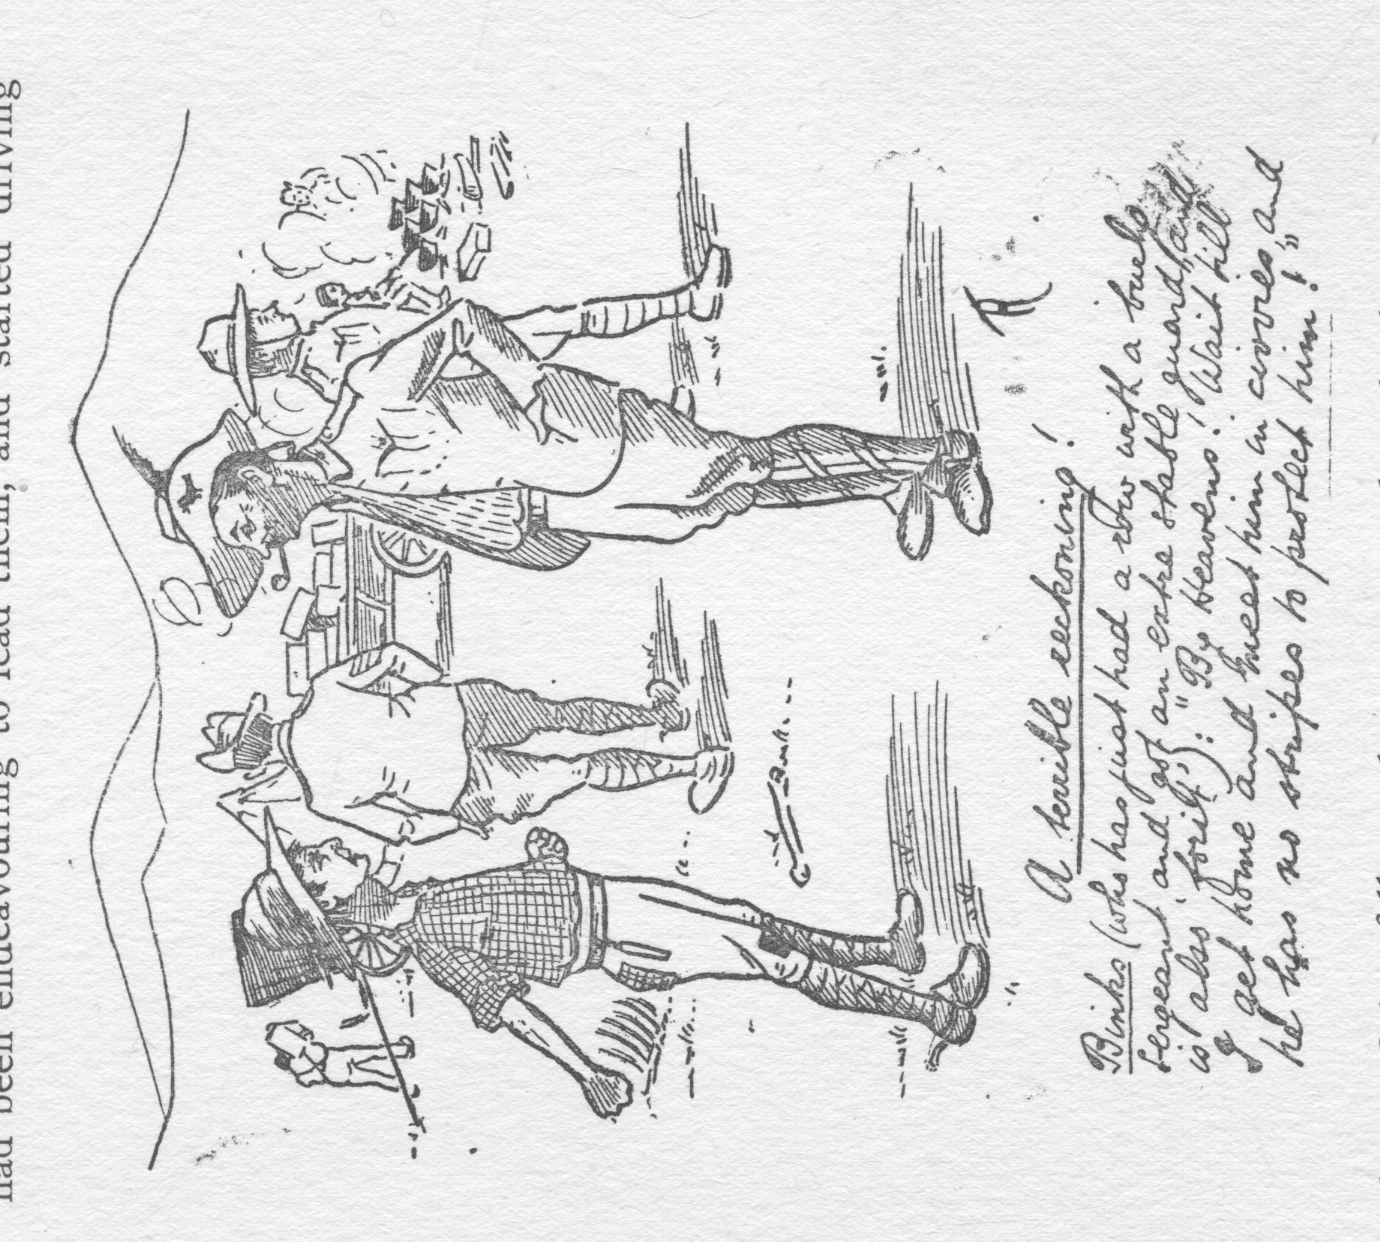 had been endeavouring to lead them, and started driving
A terrible reckoning!
Binks (who has just had a row with a buck
sergeant and got an extra stable guard, and
is also for it): "By Heavens! Wait till
I get home and meet him in civvies and
he has no stripes to protect him!"